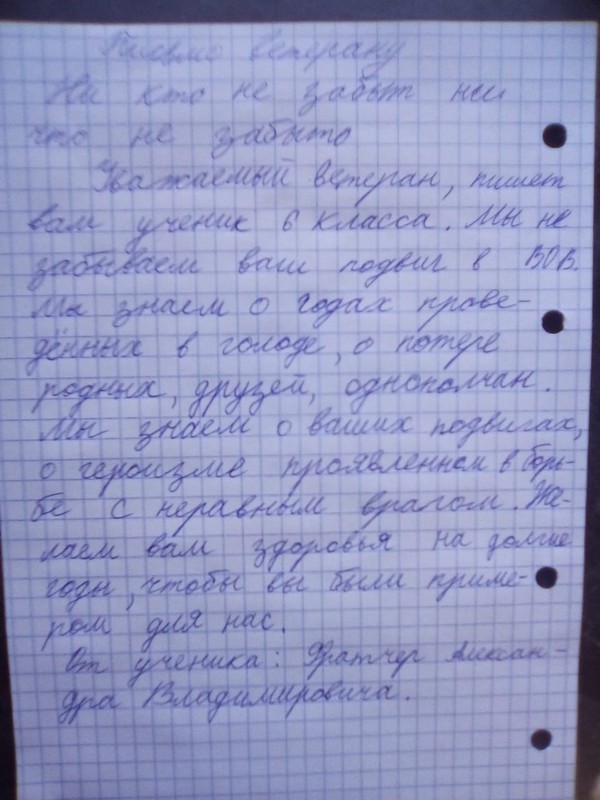 Письмо ветерану
Ни кто не забыт ни
что не забыто
Уважаемый ветеран, пишет
вам ученик 6 класса. Мы не
забываем ваш подвиг в ВОВ.
Мы знаем о годах прове-
дённых в голоде, о потере
родных, друзей, однополчан.
Мы знаем о ваших подвигах,
о героизме проявленном в борь-
бе с неравным врагом. Же-
лаем вам здоровья на долгие
годы, чтобы вы были приме-
ром для нас.
От ученика: Фратчер Алексан-
дра Владимировича.